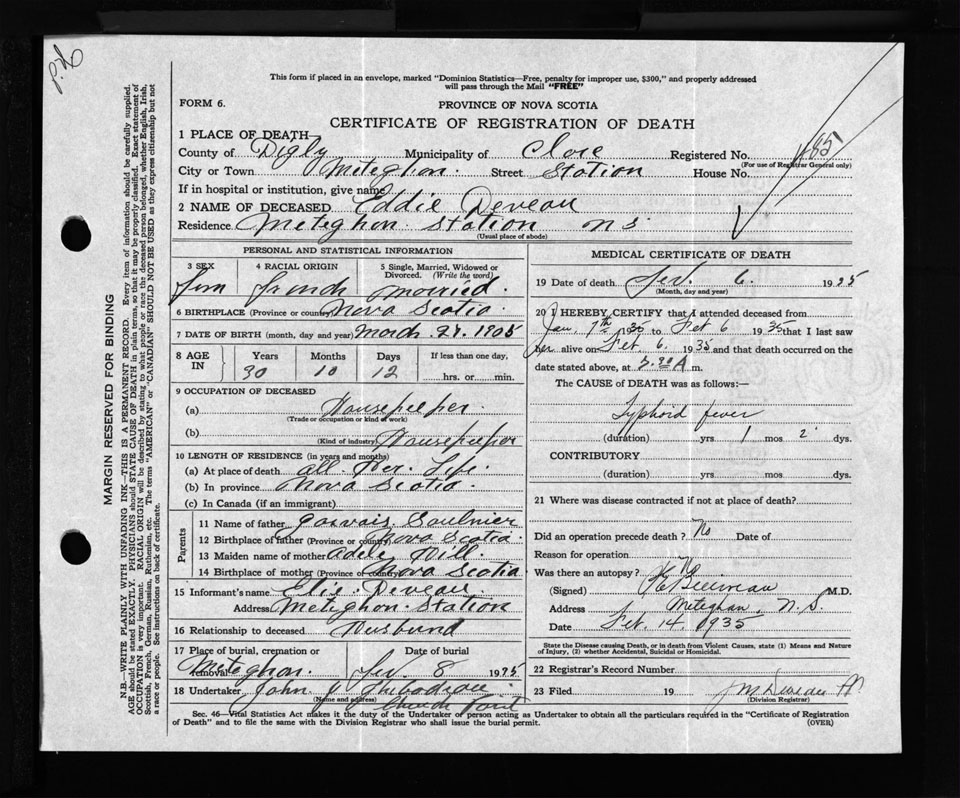 This form if placed in an envelope, marked "Dominion Statistics—Free, penalty for improper use, $300," and properly addressed
will pass through the Mail "FREE"
FORM 6.
PROVINCE OF NOVA SCOTIA
CERTIFICATE OF REGISTRATION OF DEATH
1 PLACE OF DEATH
County of Digby Municipality of Clare Registered No. 485
(For use of Registrar General only)
City or Town Meteghon. Street Station House No.
If in hospital or institution, give name
2 NAME OF DECEASED Eddie Deveau
Residence Meteghon Station NS
(Usual place of abode)
PERSONAL AND STATISTICAL INFORMATION
3 SEX 4 RACIAL ORIGIN 5 Single, Married, Widowed or Divorced. (Write the word)
french married.
6 BIRTHPLACE (Province or country) Nova Scotia
7 DATE OF BIRTH (month, day and year) March 27. 1905
8 AGE IN Years Months Days If less than one day,
30 10 12 hrs. or min.
9 OCCUPATION OF DECEASED
(a) Housekeeper.
(Trade or occupation or kind of work)
(b) Housekeeper
(Kind of industry)
10 LENGTH OF RESIDENCE (in years and months)
(a) At place of death all. Her. Life.
(b) In province Nova Scotia.
(c) In Canada (if an immigrant)
Parents
11 Name of father Saulnier
12 Birthplace of father (Province or country) Nova Scotia.
13 Maiden name of mother Adele Dill.
14 Birthplace of mother (Province or country) Nova Scotia
15 Informant's name Elie Deveau.
Address Meteghon. Station
16 Relationship to deceased Husband
17 Place of burial, cremation or removal Date of burial
Meteghon. 8 1935
18 Undertaker John J Thibodeau
(Name and address)
Church Point
MEDICAL CERTIFICATE OF DEATH
19 Date of death Feb. 6. 1935
(Month, day and year)
20 I HEREBY CERTIFY that I attended deceased from
Jan, 7th 1935 to Feb 6 1935 that I last saw
her alive on Feb. 6. 1935 and that death occurred on the
date stated above, at 5.30 A m.
The CAUSE OF DEATH was as follows:—
Typhoid fever
(duration) yrs 1 mos 2 dys.
CONTRIBUTORY
(duration) yrs. mos. dys.
21 Where was disease contracted if not at place of death?
Did an operation precede death? No Date of
Reason for operation
Was there an autopsy? No
(Signed) Belliveau M.D.
Address Meteghan, N.S.
Date Feb. 14. 1935
State the Disease causing Death, or in death from Violent Causes, state (1) Means and Nature
of Injury, (2) whether Accidental, Suicidal or Homicidal.
22 Registrar's Record Number
23 Filed 19 J M Deveau
(Division Registrar)
Sec. 46—Vital Statistics Act makes it the duty of the Undertaker or person acting as Undertaker to obtain all the particulars required in the "Certificate of Registration
of Death" and to file the same with the Division Registrar who shall issue the burial permit. (OVER)
MARGIN RESERVED FOR BINDING
N.B.—WRITE PLAINLY WITH UNFADING INK—THIS IS A PERMANENT RECORD. Every item of information should be carefully supplied.
AGE should be stated EXACTLY. PHYSICIANS should STATE CAUSE OF DEATH in plain terms, so that it may be properly classified. Exact statement of
OCCUPATION is very important. RACIAL ORIGIN will be described by stating to what people or race the deceased person belonged, whether English, Irish,
Scottish, French, German, Russian, Ruthenian, etc. The terms "AMERICAN" or "CANADIAN" SHOULD NOT BE USED as they express citizenship but not
a race or people. See instructions on back of certificate.